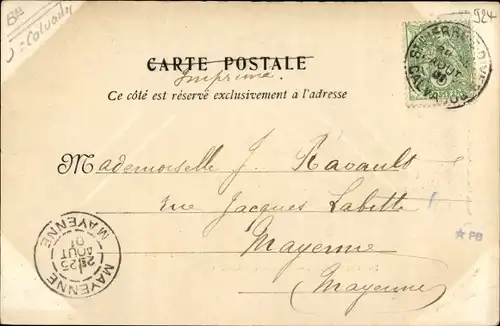 924
Calvados
CARTE POSTALE
Imprimé.
Ce côté est réservé exclusivement a l'adresse
CALVADOS
AOUT
Mademoiselle J. Ravault
rue Jacques Labitte
Mayenne
(Mayenne)
MAYENNE
2E 25
AOUT
01
MAYENNE
★ PB